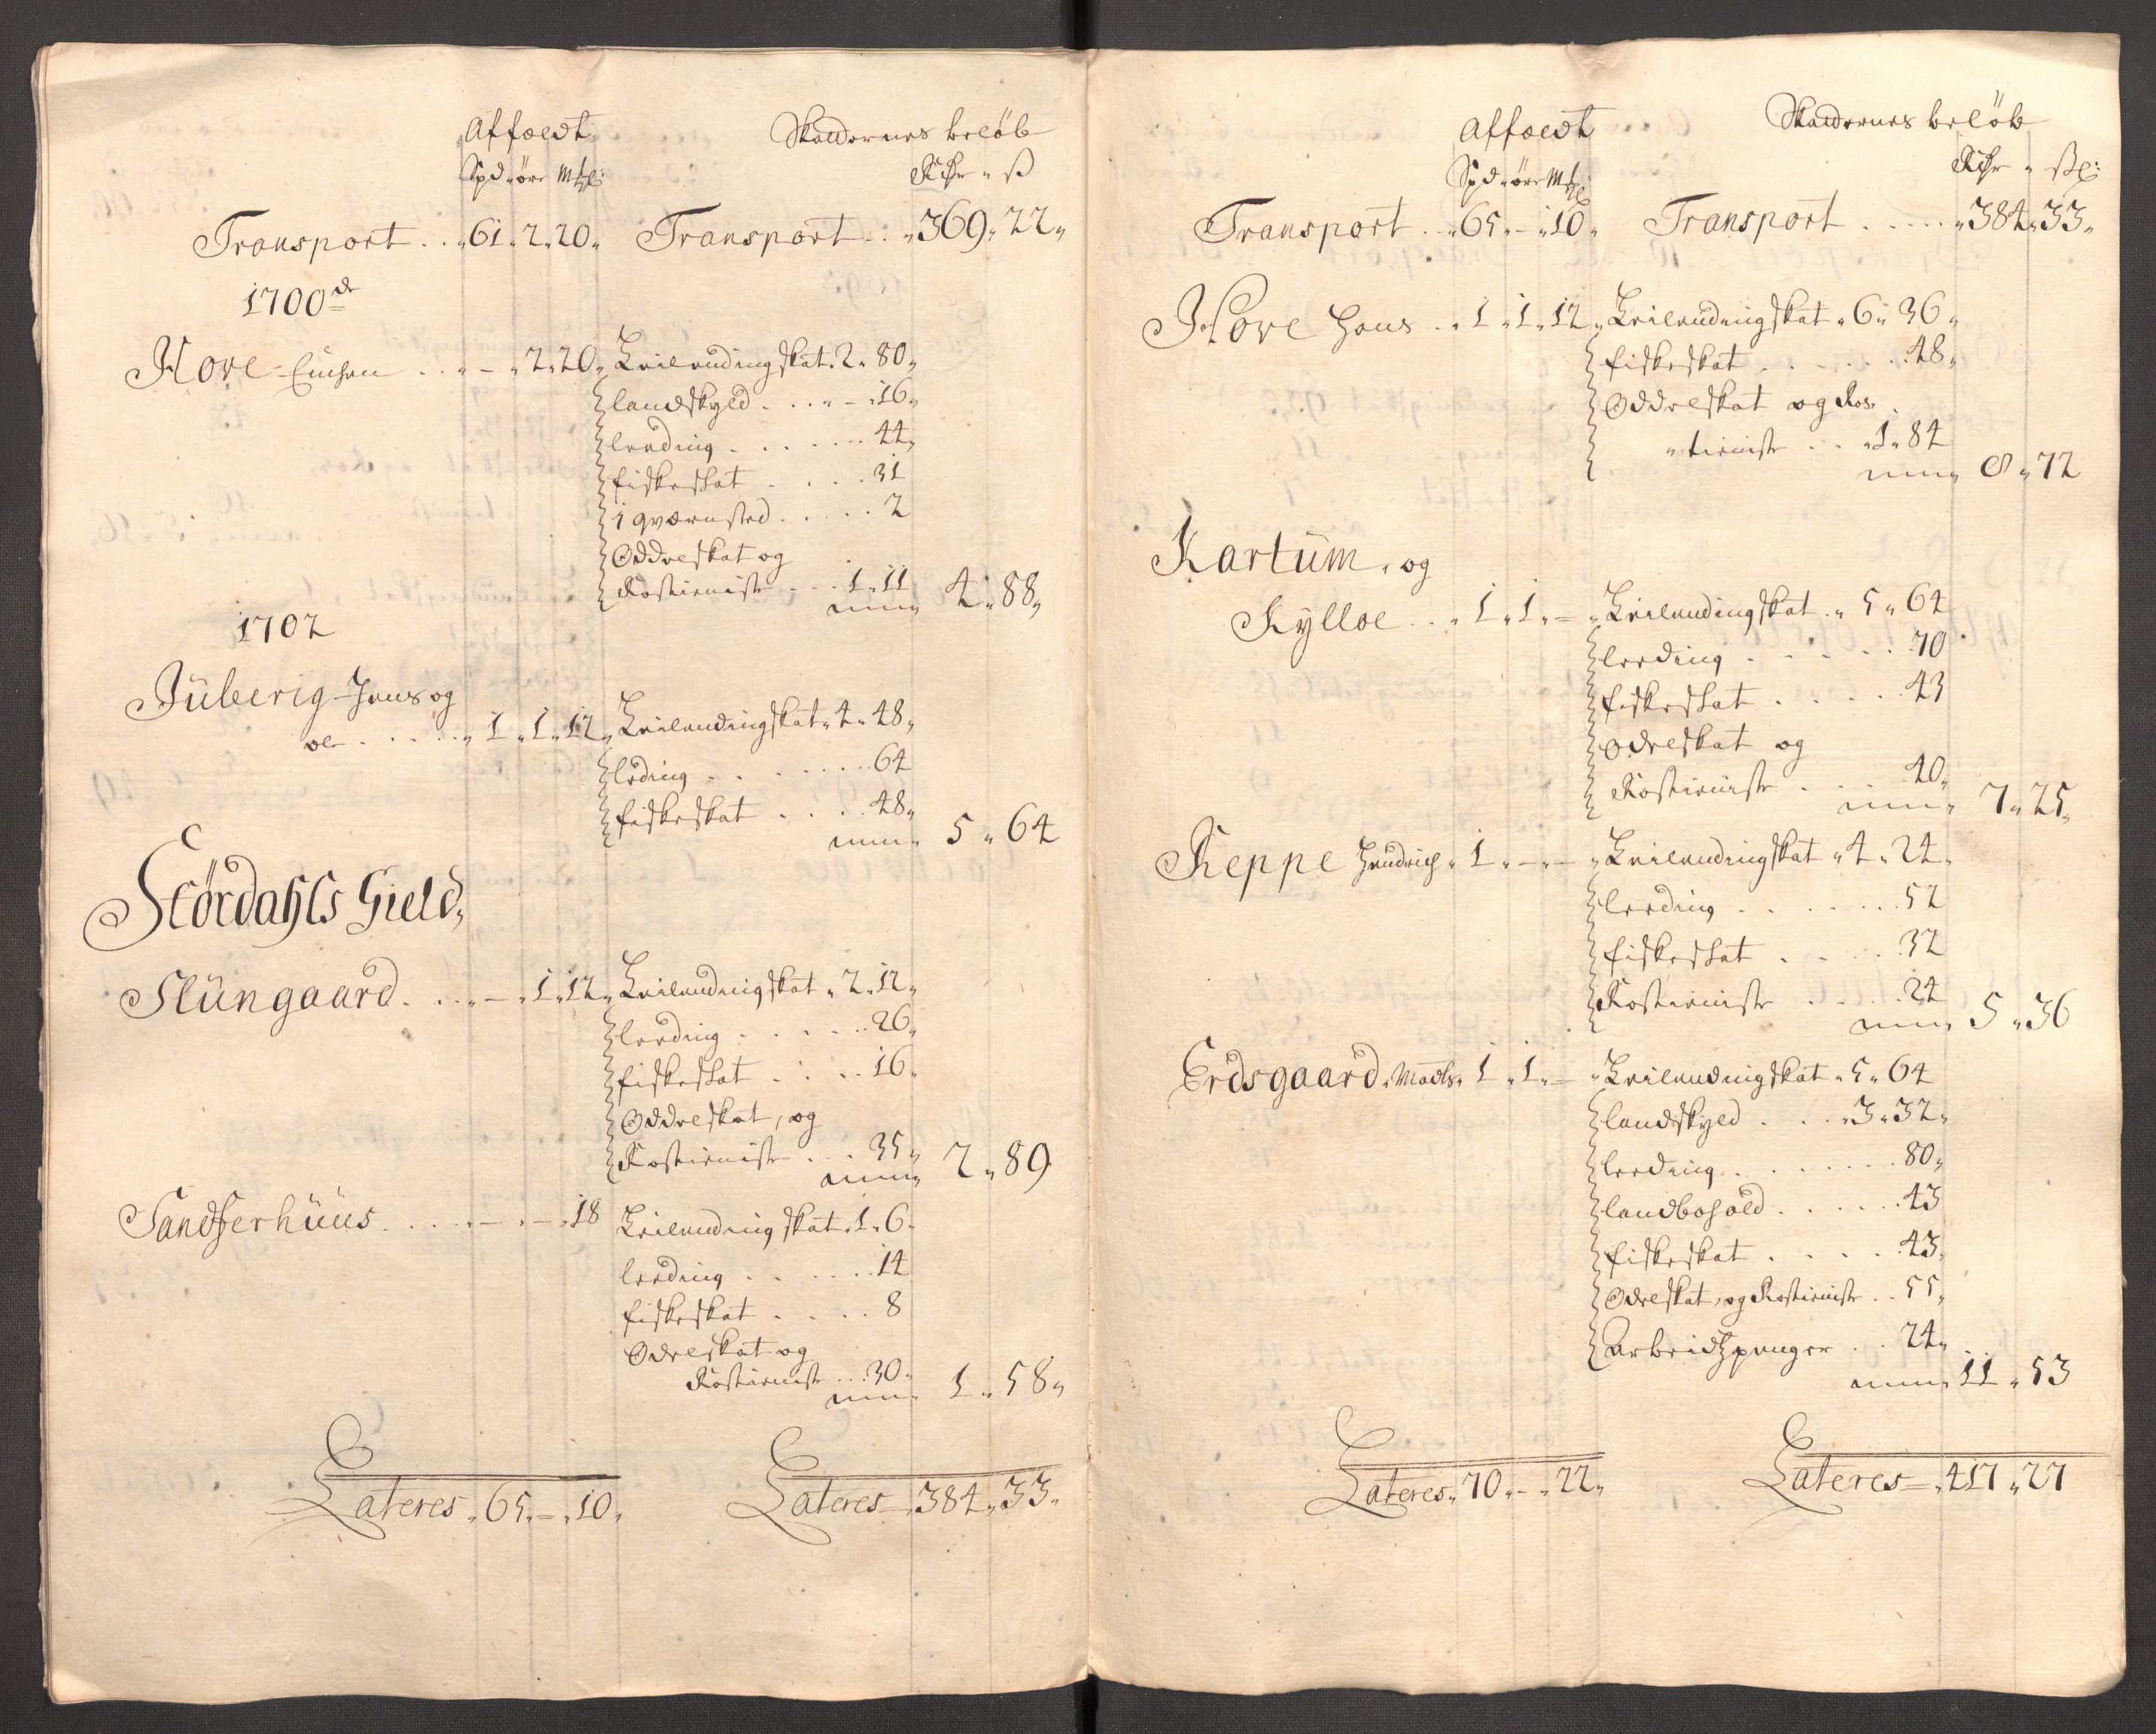 Affældt Skaldernes beløb
Spd øre Mkl: Rdr ß
Transport . . 61 . 2 . 20 . Transport . . 369 . 22 .
1700de
Hove . . - . 2 . 20 . Leilendingskat . 2 . 80 .
landskyld . . . - . 16 .
leeding . . . . . 44 .
fiskeskat . . . . 31
1 qværnsted . . . . 2
Oddreskat og
Rostieniste . . . 1 . 11 4 . 88 .
1702
Juberig Jens og
ole . . . . . 1 . 1 . 12 . Leilendingskat . 4 . 48 .
leding . . . . . 64
fiskeskat . . . . 48 .
5 . 64
Stördahls Gield,
Slüngaard . . . - . 1 . 12 . Leilendingskat . 2 . 12 .
leeding . . . . . 26 .
fiskeskat . . . . 16 .
Oddreskat, og
Rostieniste . . . 35 . 2 . 89
Sandferhüüs . . . . - . - . 18 Leilendingskat . 1 . 6 .
leeding . . . . . 14
fiskeskat . . . . 8
Odreskat og
Rostieniste . . . 30 . 1 . 58 .
Lateres . 65 . - . 10 . Lateres . 384 . 33 .
Affældt Skaldernes beløb
Spd øre Mkl: Rdr ßl:
Transport . . 65 . - . 10 . Transport . . . . . 384 . 33 .
Hove Hans . . 1 . 1 . 12 . Leilendingskat . 6 . 36 .
fiskeskat . . . . . 48 .
Oddreskat og Ros-
tieniste . . . 1 . 84
8 . 72
Kartüm . og
Kylloe . . . 1 . 1 . - Leilendingskat . . 5 . 64
leeding . . . . . 70
fiskeskat . . . . 43
Odreskat og
Rostieniste . . . 40 .
7 . 25 .
Reppe Hendrich . 1 . - . - . Leilendingskat . 4 . 24 .
leeding . . . . . 52
fiskeskat . . . . 32
Rostieniste . . . . 24
5 . 36
Erdsgaard . Mads . 1 . 1 . - . Leilendingskat . 5 . 64
landskyld . . . 3 . 32 .
leeding . . . . . 80 .
landbohold . . . . . 43
fiskeskat . . . . 43 .
Odreskat, og Rostieniste . . 55 .
Arbeidzpenger . . 24 .
11 . 53
Lateres . 70 . - . 22 . Lateres . 417 . 27